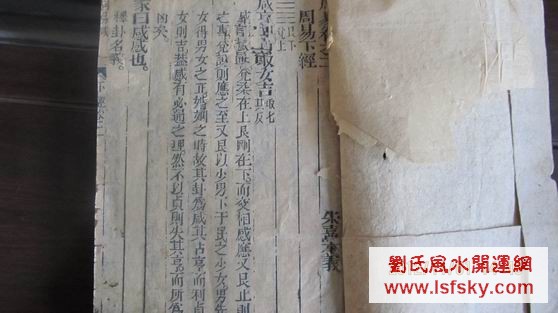 周易下經
朱熹本義
艮下
兌上
咸亨利貞取女吉 取七 具反
之專兌說則應之至又艮以少男下于兌之少女男先
女得男女之正婚姻之時故其卦爲咸其占亨而利貞
女則吉蓋感有必通之理然不以貞則失其亨而所爲
凶矣
彖曰咸感也
釋卦名義
劉氏風水開運網
www.lsfsky.com